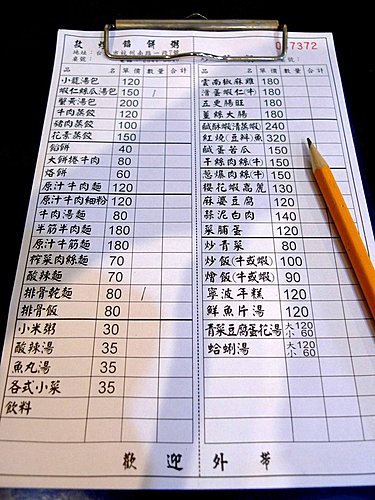 037372
品 名 單價 數量 合計
小籠湯包 120
蝦仁絲瓜湯包 150 /
蟹黃湯包 200
牛肉蒸餃 120
豬肉蒸餃 100
花素蒸餃 150
餡餅 40
大餅捲牛肉 80
烙餅 60
原汁牛肉麵 120
原汁牛肉細粉 120
牛肉湯麵 80
半筋半肉麵 180
原汁牛筋麵 180
榨菜肉絲麵 70
酸辣麵 70
排骨乾麵 80 /
排骨飯 80
小米粥 30
酸辣湯 35
魚丸湯 35
各式小菜 35
飲料
品 名 單價 數量 合計
雲南椒麻雞 180
滑蛋蝦仁(牛) 180
五更腸旺 180
薑絲大腸 180
鹹酥蝦(清蒸蝦) 240
紅燒(豆瓣)魚 320
鹹蛋苦瓜 150
干絲肉絲(牛) 150
蔥爆肉絲(牛) 150
櫻花蝦高麗 130
麻婆豆腐 120
蒜泥白肉 140
菜脯蛋 120
炒青菜 80
炒飯(牛或蝦) 100
燴飯(牛或蝦) 90
寧波年糕 120
鮮魚片湯 120
青菜豆腐蛋花湯 大120 小 60
蛤蜊湯 大120 小 60
歡 迎 外 帶